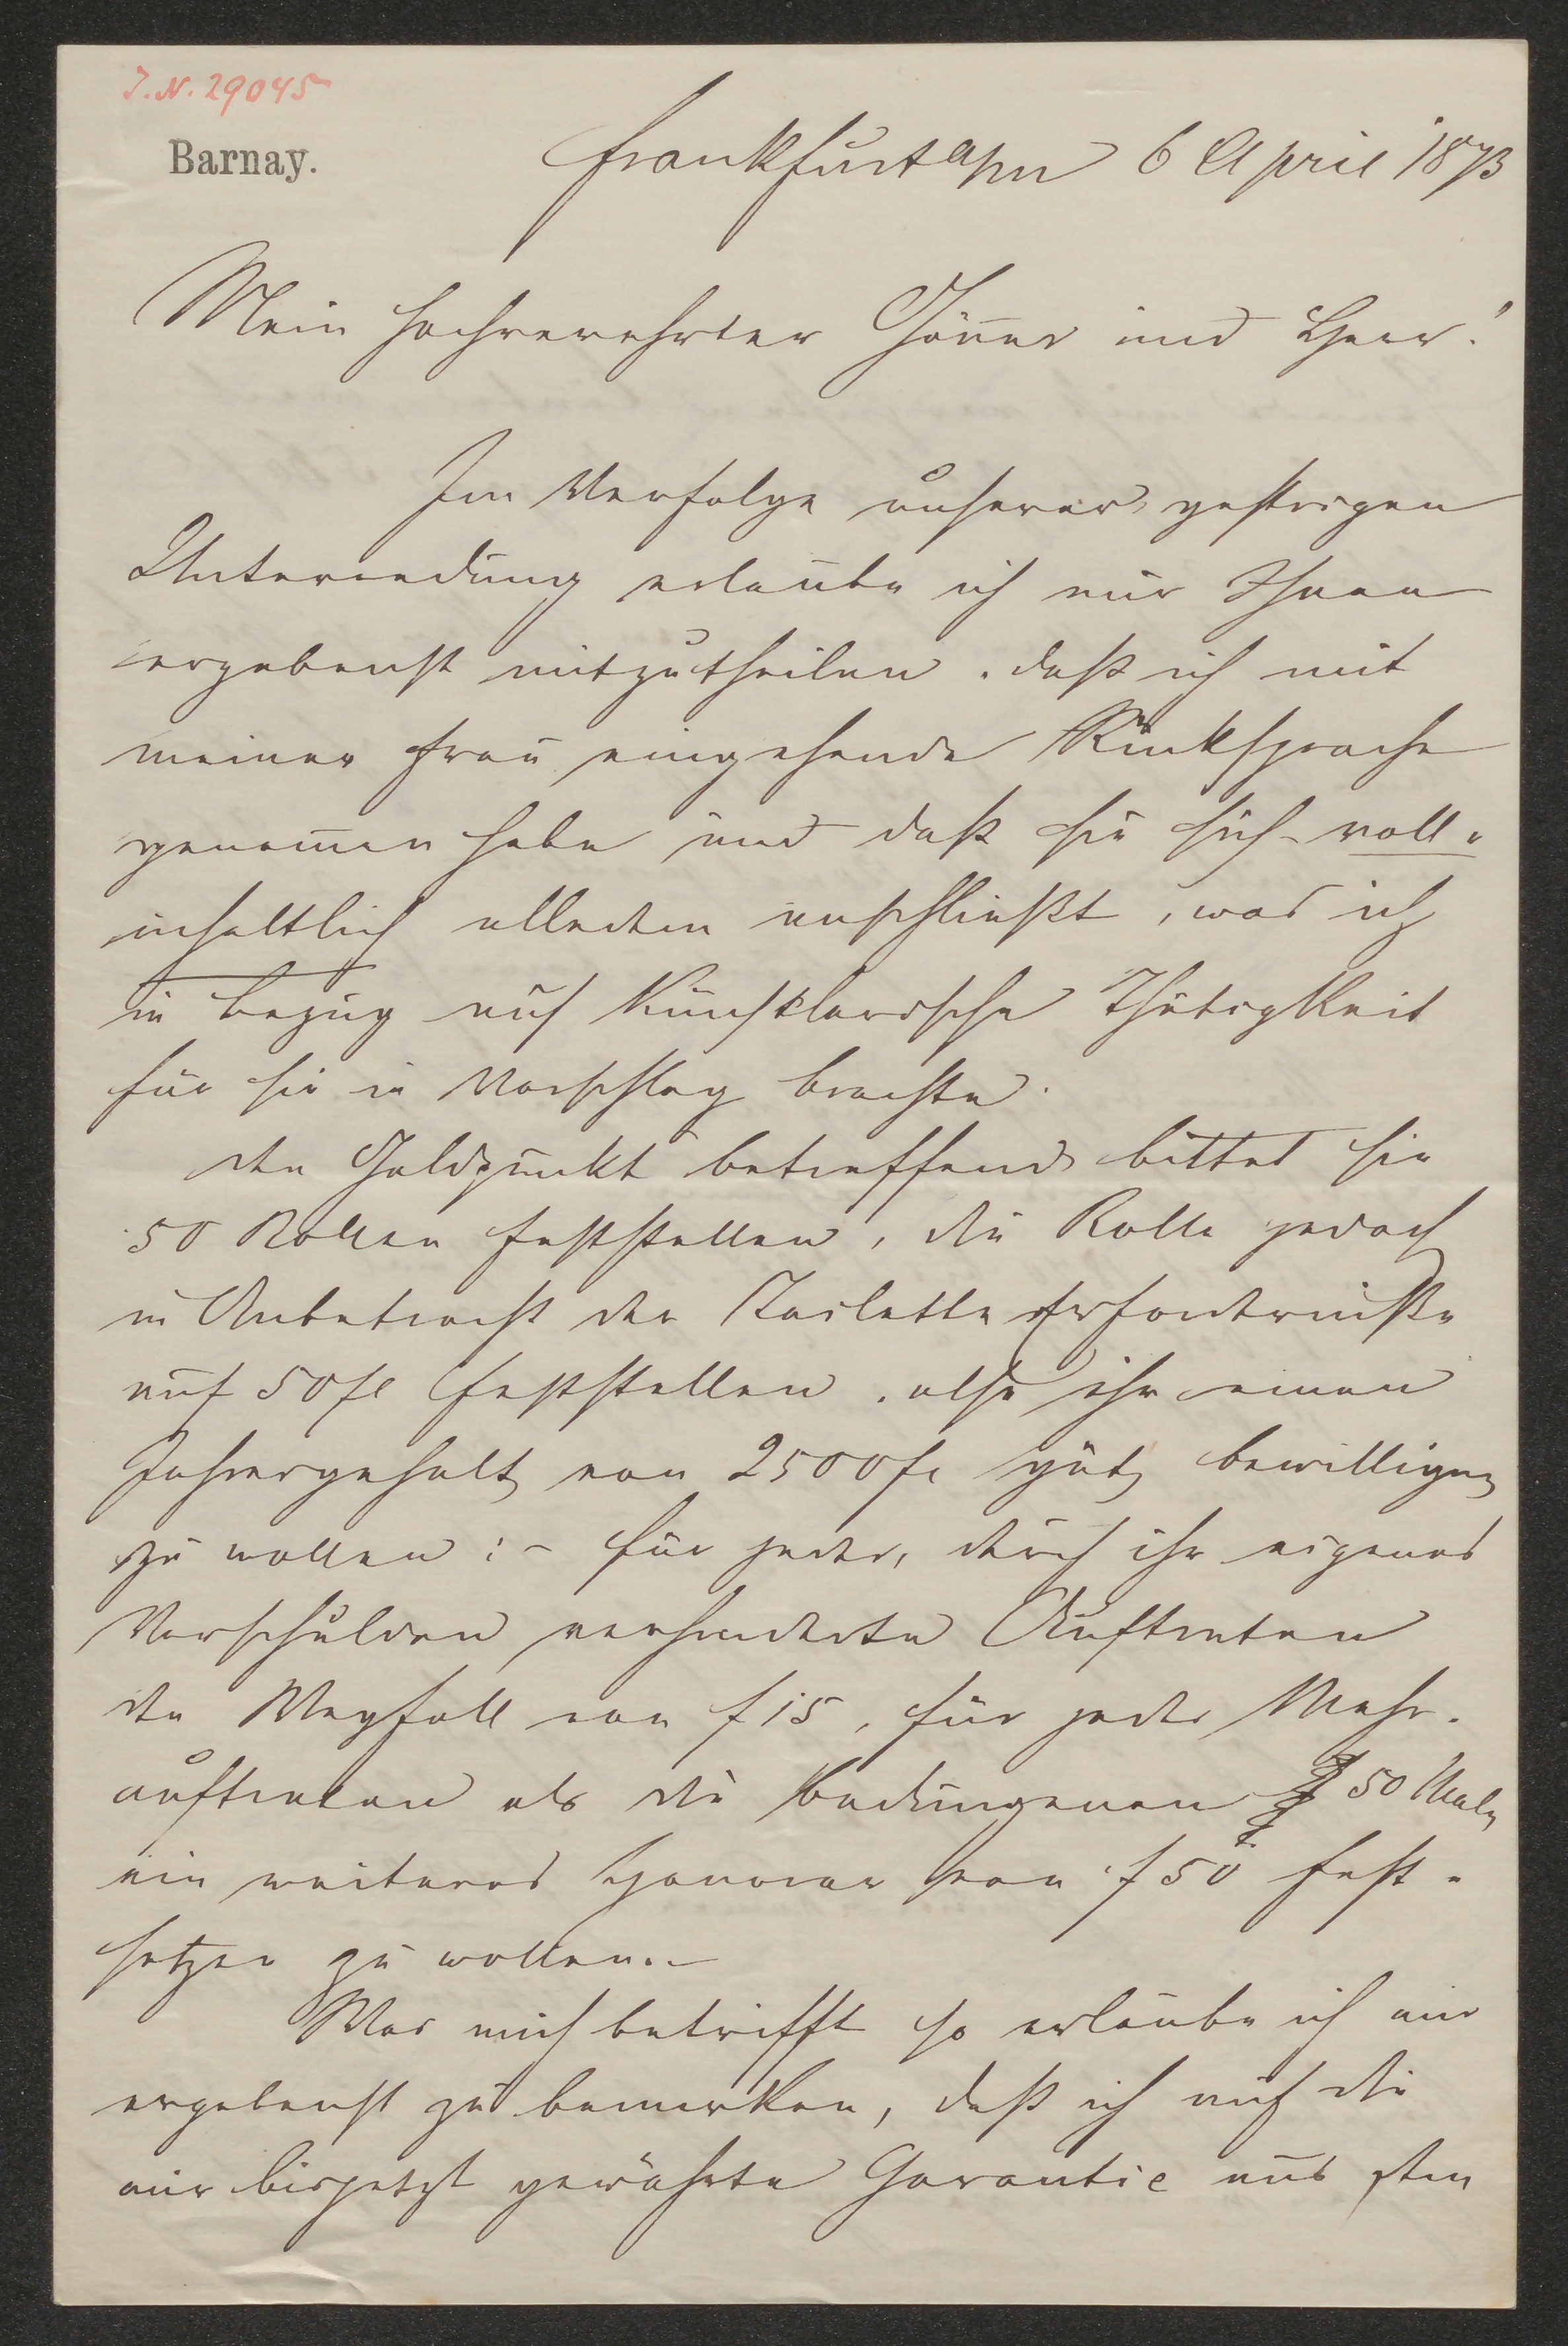 I.N. 29045
Barnay.
Frankfurt a/m 6 April 1873
Mein hochverehrter Gönner und Herr!
Im Verfolge unserer gestrigen
Unterredung erlaube ich mir Ihnen
ergebenst mitzutheilen, daß ich mit
meiner Frau eingehende Rücksprache
genom̅en habe und daß sie sich voll-
inhaltlich alledem anschließt, was ich
in Bezug auf künstlerische Thätigkeit
für sie in Vorschlag brachte.
Den Geldpunkt betreffend bittet sie
50 Rollen feststellen, die Rolle jedoch
in Anbetracht der Toilette Erforderniße
auf 50 fl feststellen, also ihr einen
Jahresgehalt von 2500 fl güt. bewilligen
zu wollen; – für jedes, durch ihr eigenes
Verschulden verhinderte Auftreten
den Wegfall von f 15, für jedes Mehr-
auftreten als die bedungenen 50 Male
ein weiteres Honorar von f 50 fest-
setzen zu wollen. –
Was mich betrifft so erlaube ich mir
ergebenst zu bemerken, daß ich auf die
mir bisjetzt gewährte Garantie aus den